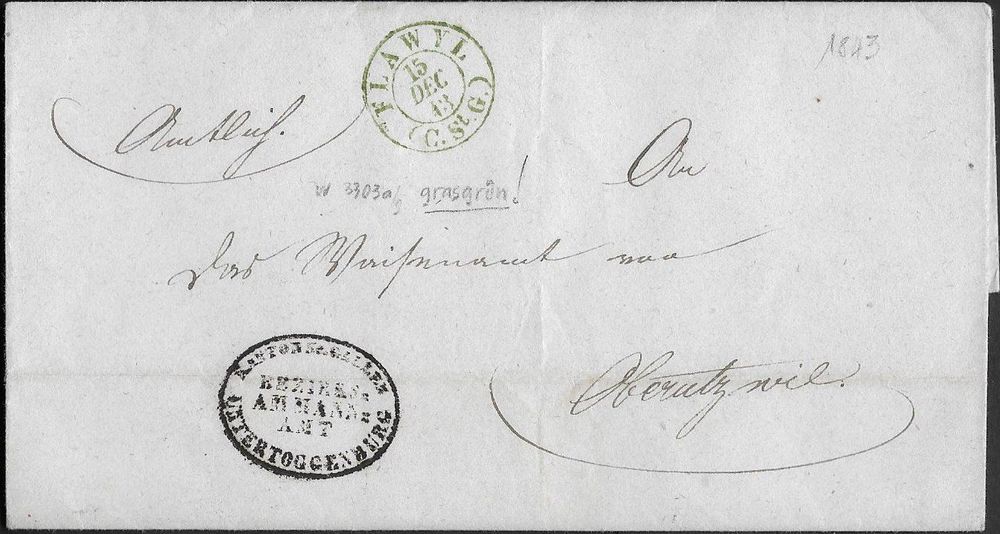 1843
FLAWYL
15
DEC
43
(C. St. G.)
Amtlich.
An
W 3303a/b grasgrün!
Das Waisenamt von
Oberutzwil.
KANTON St. GALLEN
BEZIRKS=
AMMANN=
AMT
UNTERTOGGENBURG